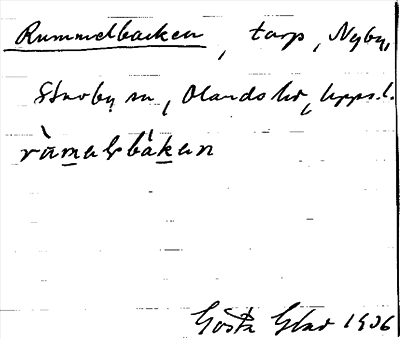 Rummelbacken, torp, Nyby,
Stavby sn, Olands hd, Upps. l.
Gösta Glad 1906